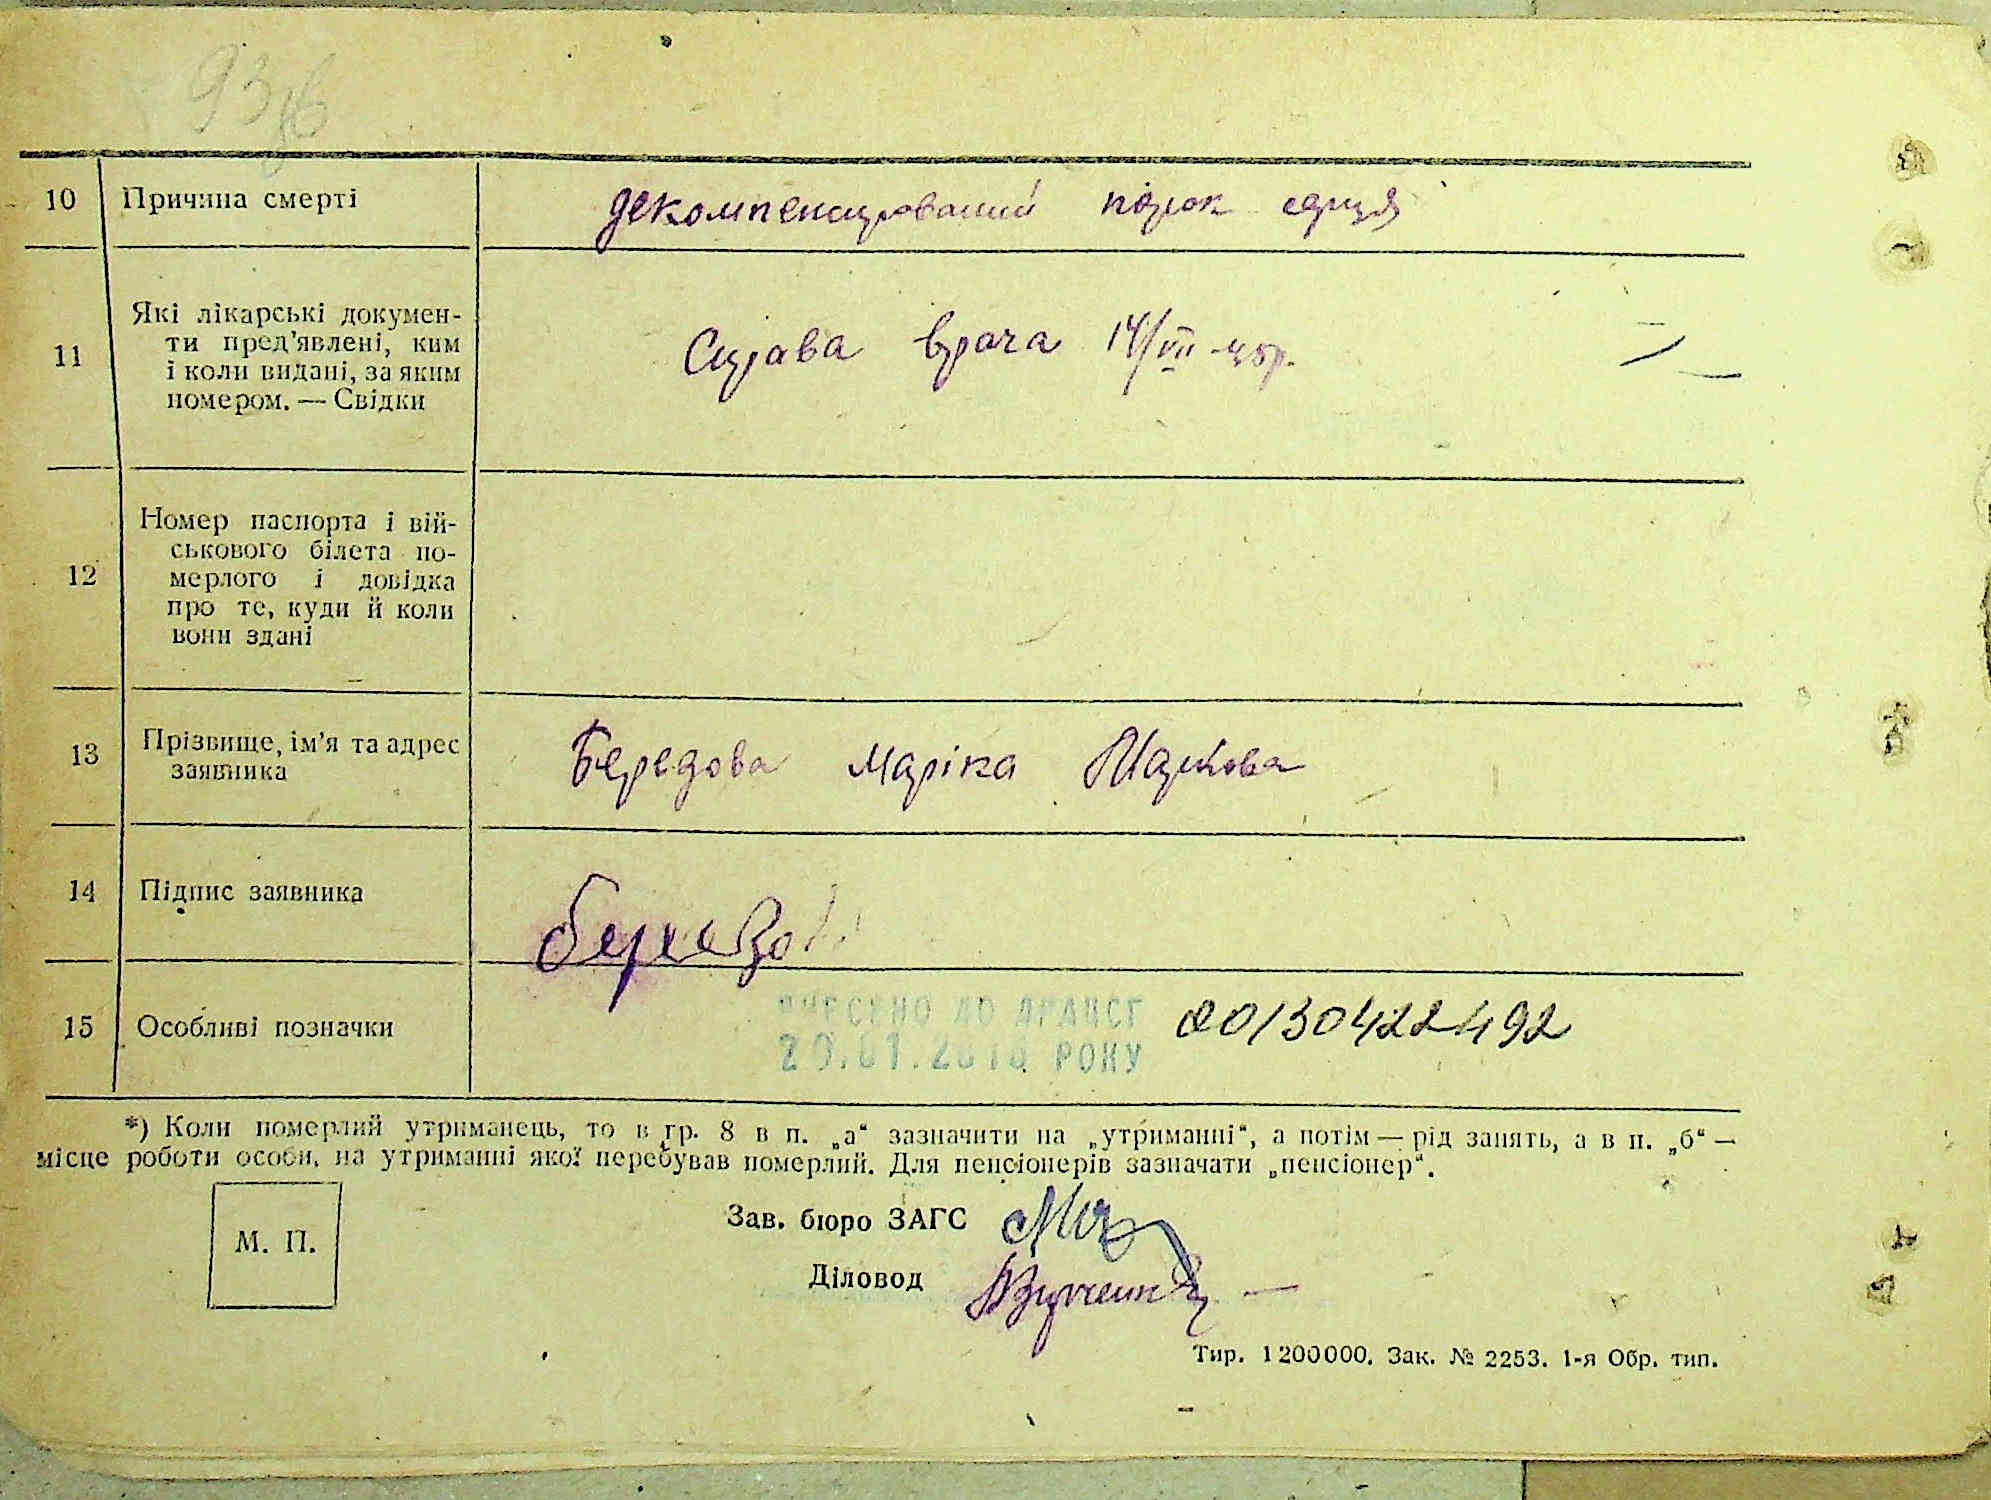 10 Причина смерті декомпенсирований порок серця
11 Які лікарські докумен-
ти пред'явлені, ким
і коли видані, за яким
номером. — Свідки
врача 14/VII-45р.
12 Номер паспорта і вій-
ськового білета по-
мерлого і довідка
про те, куди й коли
вони здані
13 Прізвище, ім'я та адрес
заявника
Бередова Маріка
14 Підпис заявника
15 Особливі позначки
ВНЕСЕНО ДО ДРАЦСГ 20130422492
РОКУ
*) Коли померлий утриманець, то в гр. 8 в п. „а“ зазначити на „утриманні“, а потім — рід занять, а в п. „б“ —
місце роботи особи, на утриманні якої перебував померлий. Для пенсіонерів зазначати „пенсіонер“.
М. П.
Зав. бюро ЗАГС
Діловод
Тир. 1200000. Зак. № 2253. 1-я Обр. тип.